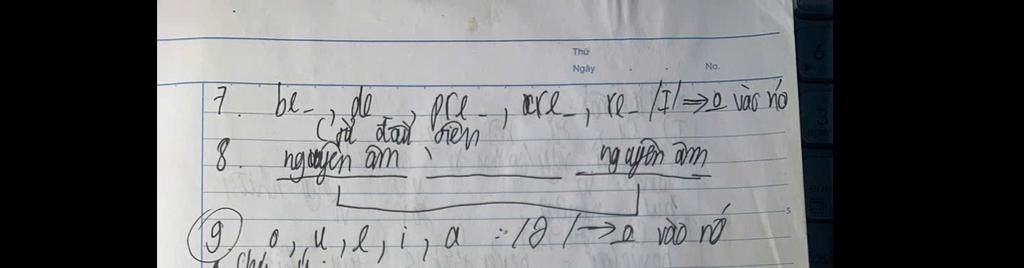 Thứ
Ngày No.
7. be_, de_, pre_, cre_, re_ /I/ ⇒ o vào nó
(từ đầu tiên
8. nguyên âm nguyên âm
9. o, u, e, i, a : /ə/ → o vào nó